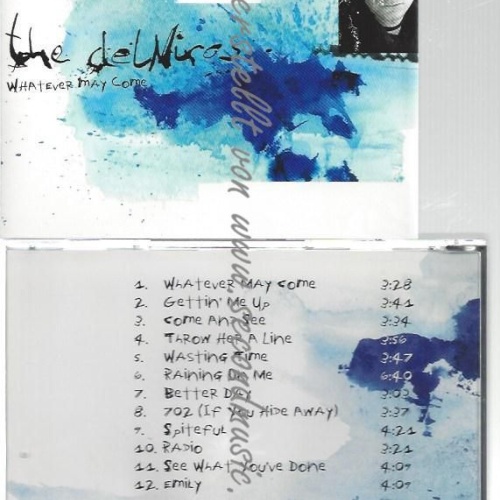 the delMiras
Whatever May Come
erstellt von www.secondmusic.
1. Whatever May Come 3:28
2. Gettin' Me Up 3:41
3. Come And See 3:34
4. Throw Her A Line 3:56
5. Wasting Time 3:47
6. Raining On Me 6:40
7. Better Day 3:03
8. 702 (If You Hide Away) 3:37
9. Spiteful 4:21
10. Radio 3:21
11. See What You've Done 4:09
12. Emily 4:09